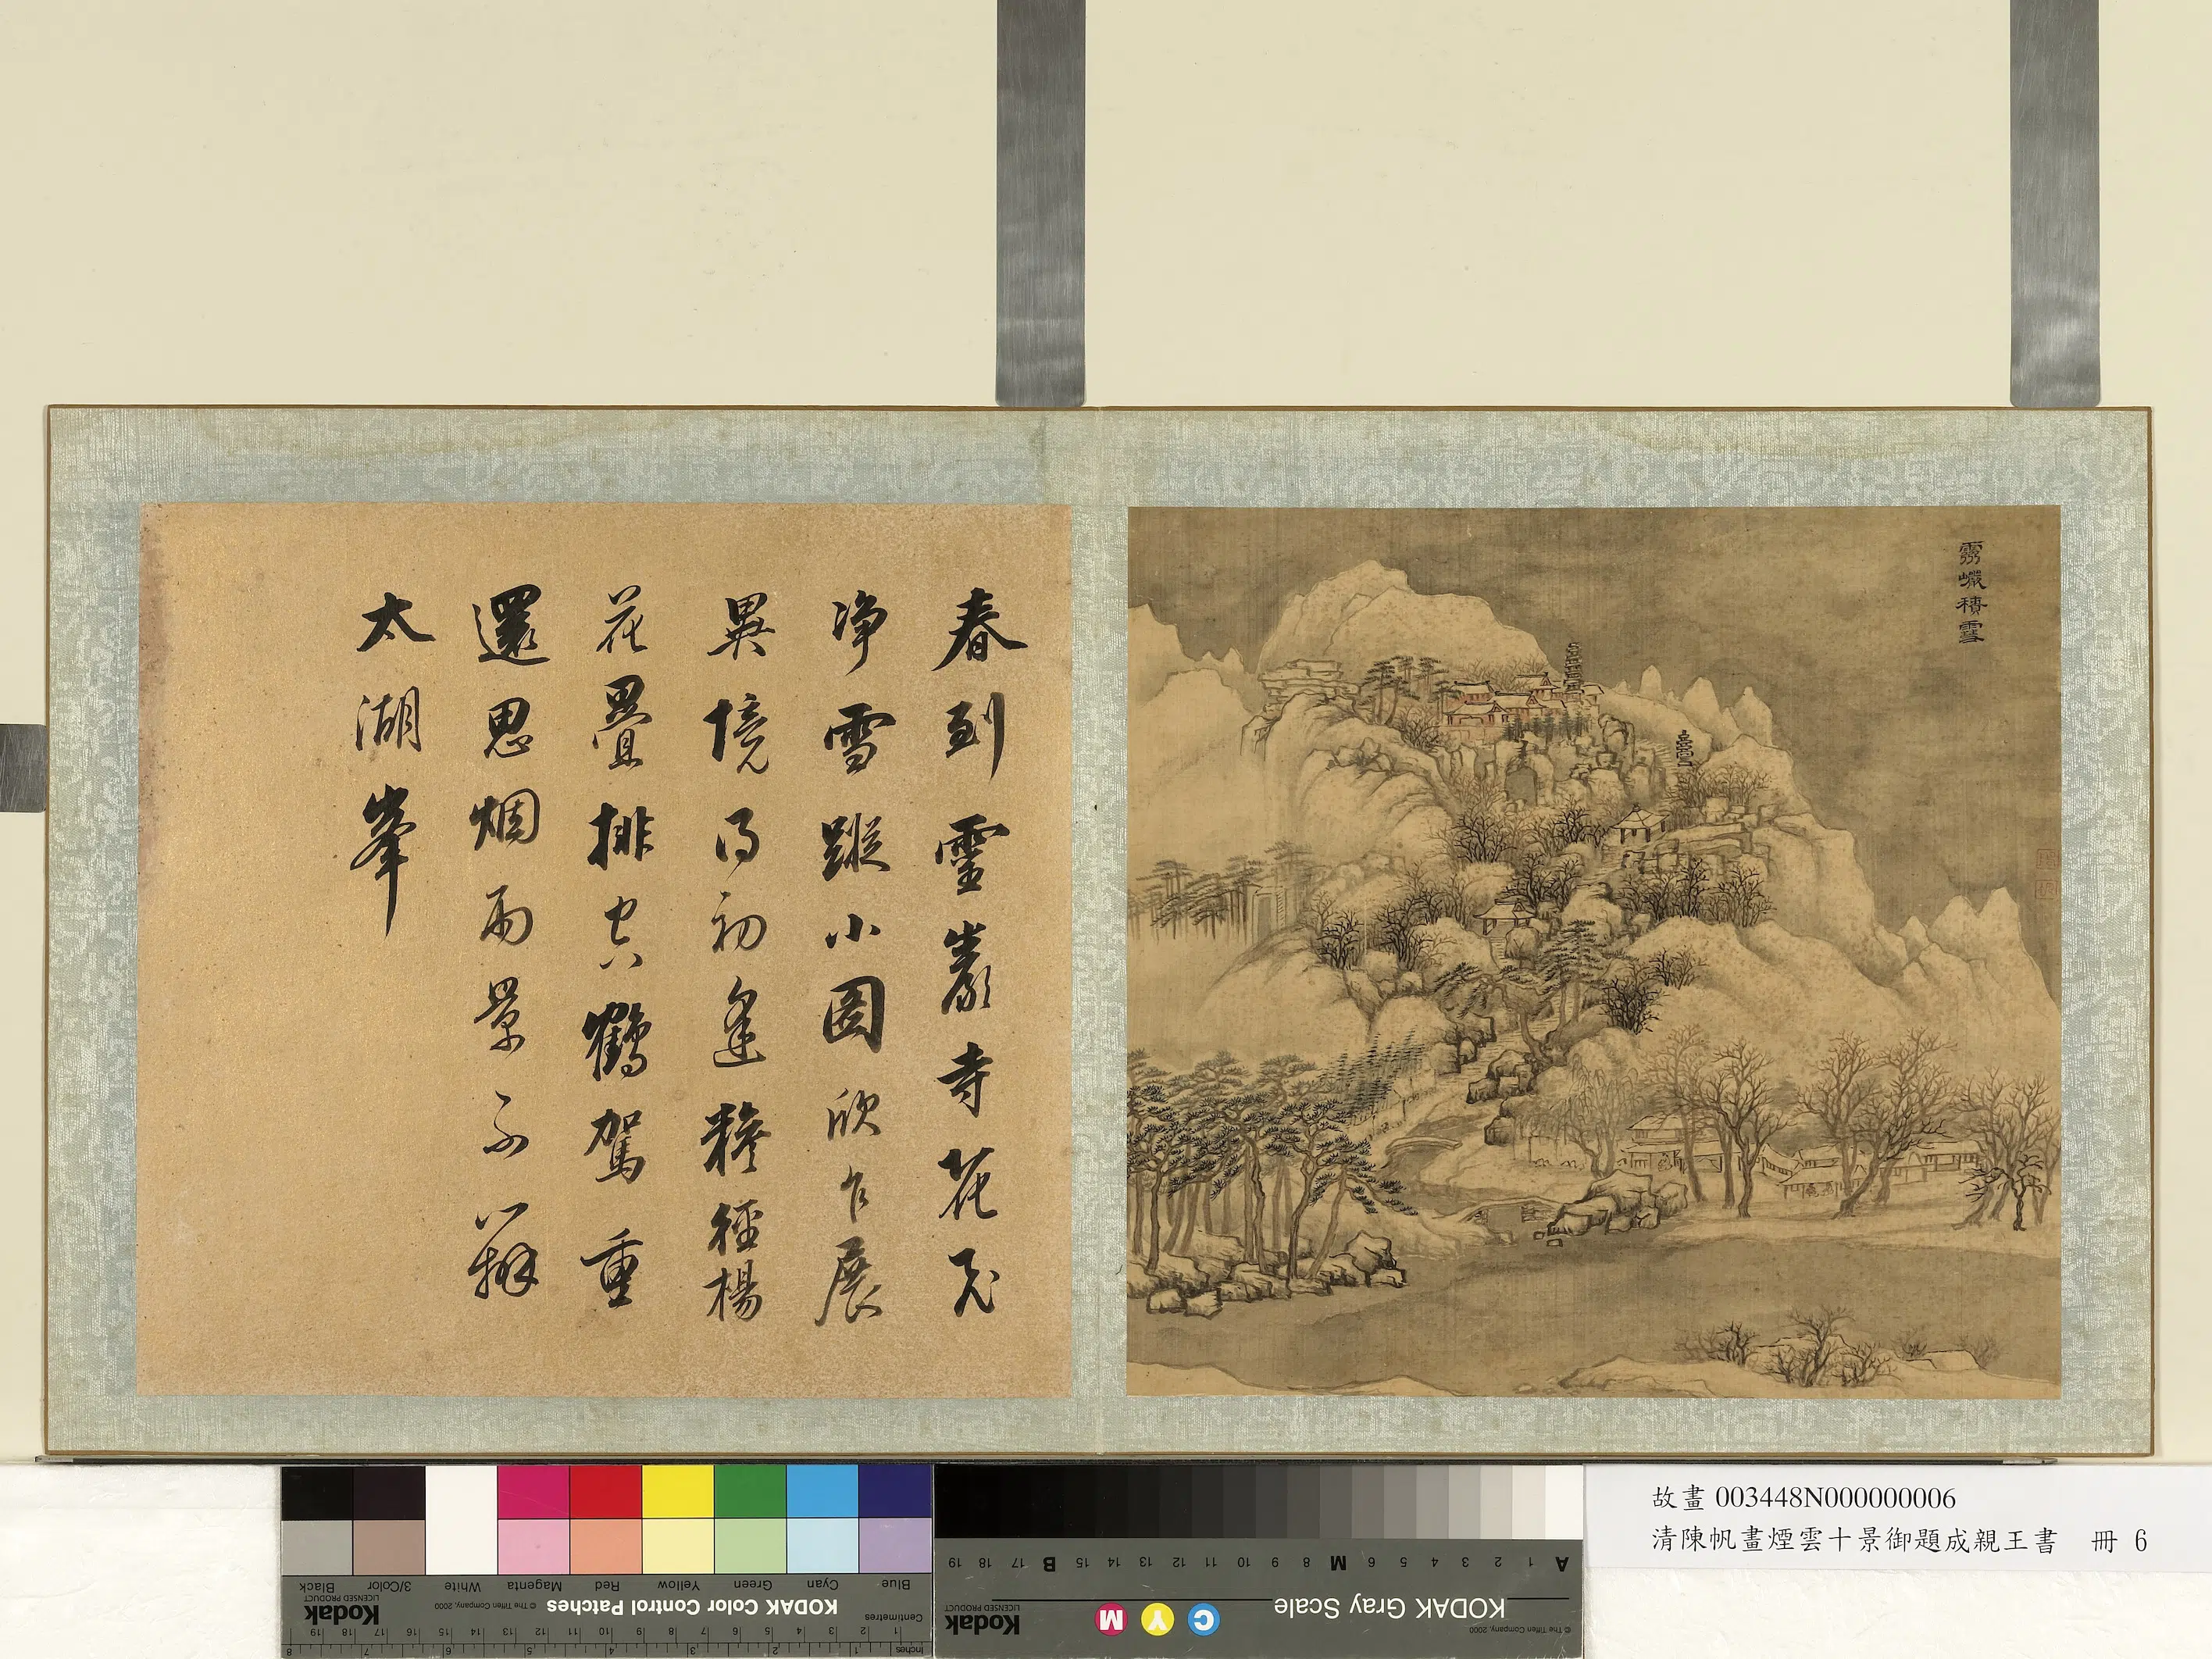 靈巖積雪
春到靈巖寺花
淨雪蹤小圖欣乍展
異境得初逢糝徑楊
花疊排空鶴駕重
還思烟雨景不辨
太湖峯
故畫 003448N000000006
清陳帆畫煙雲十景御題成親王書 冊 6
KODAK Color Control Patches
© The Tiffen Company, 2000
Kodak
LICENSED PRODUCT
Blue Cyan Green Yellow Red Magenta White 3/Color Black
Centimetres
1 2 3 4 5 6 7 8 9 10 11 12 13 14 15 16 17 18 19
Inches
1 2 3 4 5 6 7 8
KODAK Gray Scale
© The Tiffen Company, 2000
C Y M
Kodak
LICENSED PRODUCT
A 1 2 3 4 5 6 M 8 9 10 11 12 13 14 15 B 17 18 19